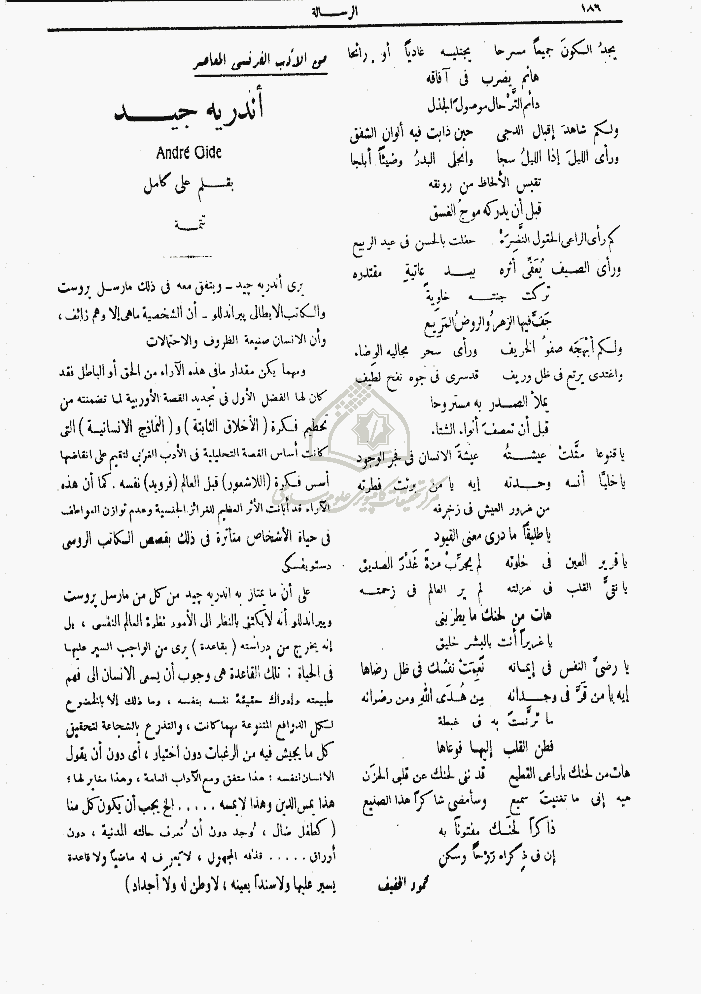 ١٨٦
الرسالة
يجدُ الكونَ جميعاً مسرحا يجتليه غادياً أو رائحا
هائم يضرب فى آفاقه
دائم التَّرحال موصول الجذل
ولكم شاهدَ إقبال الدجى حين ذابت فيه ألوان الشفق
ورأى الليلَ إذا الليلُ سجا وانجلى البدرُ وضيئاً أبلجا
تقبس الألحاظ من رونقه
قبل أن يدركه موجُ الغسق
كم رأى الراعى الحقول النَّضِرَهْ حفلت بالحسن فى عيد الربيع
ورأى الصيف يُعَفِّى أثره بيد عاتيةٍ مقتدره
تركت جنته خاويةً
جَفَّ فيها الزهرُ والروضُ المَريع
ولكم أبهجَهَ صفوُ الخريف ورأى سحر مجاليه الوِضاء
واغتدى يرتع فى ظل وريف قد سرى فى جوه نفح لطيف
يملأ الصدر به مستروحا
قبل أن تعصفَ أنواء الشتاء
يا قنوعا مثَّلتْ عيشتُه عيشةَ الانسان فى فجر الوجود
يا خليَّا أنسه وحدته إيه يا من برئت فطرته
من غرور العيش فى زخرفه
يا طليقاً ما درى معنى القيود
يا قرير العين فى خلوته لم يجرِّبْ مرَّةً غَدْرَ الصديق
يا نقىَّ القلب فى عزلته لم ير العالم فى زحمته
هات من لحنك ما يطربنى
يا غريراً أنت بالبشر خليق
يا رضىَّ النفس فى إيمانه نَعِمَتْ نفسُك فى ظل رضاها
إيه يا من قَرَّ فى وجدانه بين هُدَى الله ومن رضوانه
ما ترنَّمتَ به فى غبطة
فطن القلب إليها فوعاها
هات من لحنك يا راعى القطيع قد نفى لحنك عن قلبى الحزَن
هيه إنى ما تغنيت سميع وسأمضى شاكراً هذا الصنيع
ذاكراً لحنك مفتوناً به
إن فى ذِكراه رَوْحاً وسكن
محمود الخفيف
من الأدب الفرنسى المعاصر
أندريه جيد
André Gide
بقلم على كامل
تتمة
يرى أندريه جيد ــ ويتفق معه فى ذلك مارسل بروست
والكاتب الايطالى پيراندللو ــ أن الشخصية ماهى إلا وهم زائف ،
وأن الانسان صنيعة الظروف والاحتمالات
ومهما يكن مقدار ما فى هذه الآراء من الحق أو الباطل فقد
كان لها الفضل الأول فى تجديد القصة الأوربية لما تضمنته من
تحطيم فكرة ( الأخلاق الثابتة ) و ( النماذج الانسانية ) التى
كانت أساس القصة التحليلية فى الأدب الغربى لتقيم على انقاضها
أسس فكرة ( اللاشعور ) قبل العالم ( فرويد ) نفسه . كما أن هذه
الآراء قد أبانت الأثر العظيم للغرائز الجنسية وعدم توازن العواطف
فى حياة الأشخاص متأثرة فى ذلك بقصص الكاتب الروسى
دستويفسكى
على أن ما يمتاز به اندريه جيد من كل من مارسل بروست
وپيراندللو أنه لا يكتفى بالنظر الى الأمور نظرة العالم النفسى ، بل
إنه يخرج من دراسته ( بقاعدة ) يرى من الواجب السير عليها
فى الحياة : تلك القاعدة هى وجوب أن يسعى الانسان الى فهم
طبيعته وإدراك حقيقة نفسه بنفسه ، وما ذلك إلا بالخضوع
لكل الدوافع المتنوعة مهما كانت ، والتذرع بالشجاعة لتحقيق
كل ما يجيش فيه من الرغبات دون اختيار ، أى دون أن يقول
الانسان لنفسه : هذا متفق ومع الآداب العامة ، وهذا مغاير لها ؛
هذا يمس الدين وهذا لا يمسه ..... الخ يجب أن يكون كل منا
( كطفل ضال ، تُوجد دون أن تُعرف حالته المدنية ، دون
أوراق ..... قذفه المجهول ، لا يُعرف له ماضياً ولا قاعدة
يسير عليها ولا سنداً بعينه ، لا وطن له ولا أجداد )